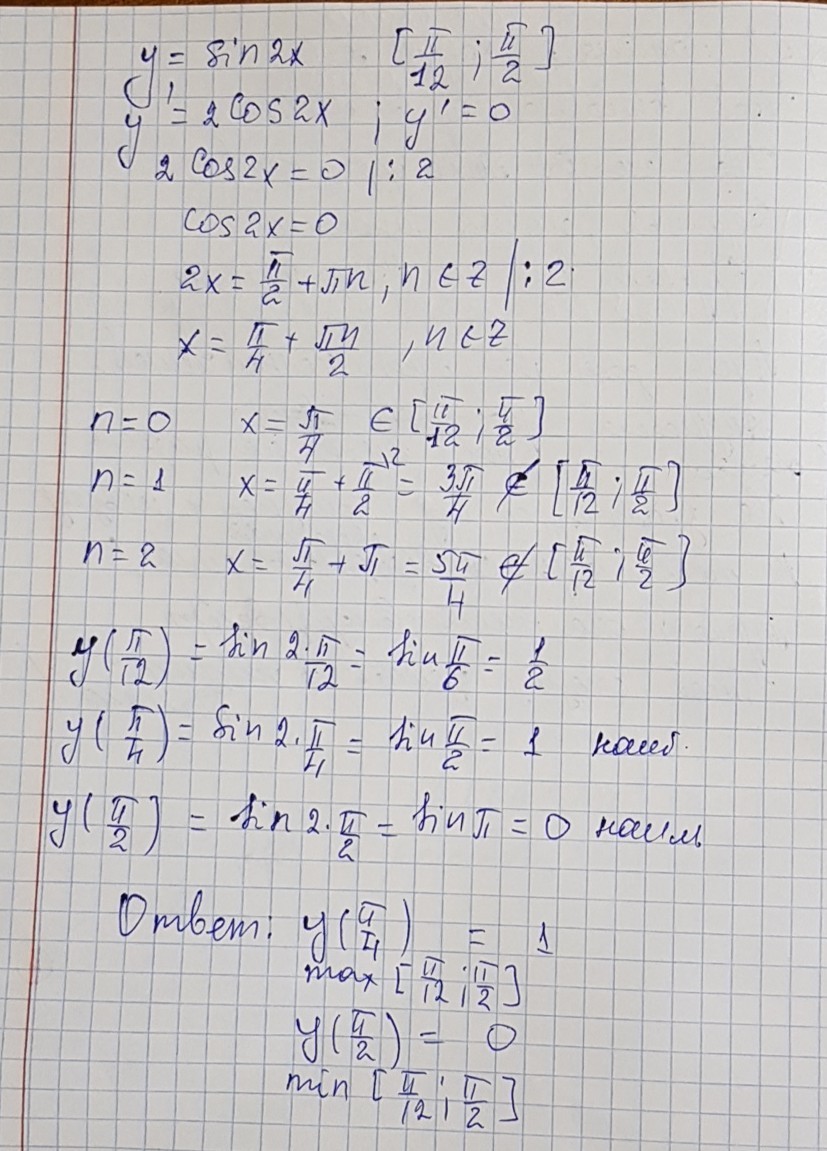 y = sin 2x [π/12 ; π/2]
y' = 2 cos 2x ; y' = 0
2 cos 2x = 0 | : 2
cos 2x = 0
2x = π/2 + πn , n ∈ Z | : 2
x = π/4 + πn/2 , n ∈ Z
n = 0 x = π/4 ∈ [π/12 ; π/2]
n = 1 x = π/4 + π/2 \2 = 3π/4 ∉ [π/12 ; π/2]
n = 2 x = π/4 + π = 5π/4 ∉ [π/12 ; π/2]
y(π/12) = sin 2·π/12 = sin π/6 = 1/2
y(π/4) = sin 2·π/4 = sin π/2 = 1 наиб.
y(π/2] = sin 2·π/2 = sin π = 0 наим
Ответ: y(π/4) = 1
max [π/12 ; π/2]
y(π/2) = 0
min [π/12 ; π/2]